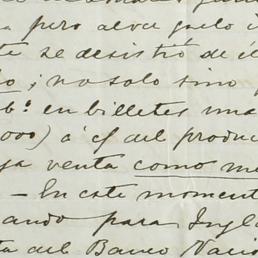 pero
te se desistió de
; no solo sino
en billetes una
000) á cf del produc
ya venta como me
– En este moment
ando para Ingla
ta del Banco Nacio